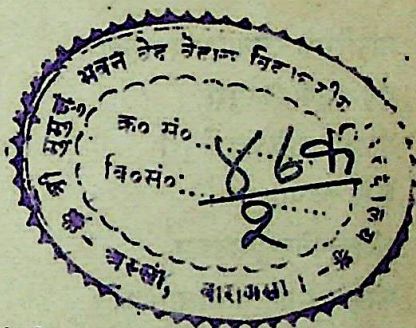 श्री मुमुक्षु भवन वेद वेदाङ्ग विद्यालय
क्र० सं०
वि०सं०:
४६क
२
अस्सी, वाराणसी।